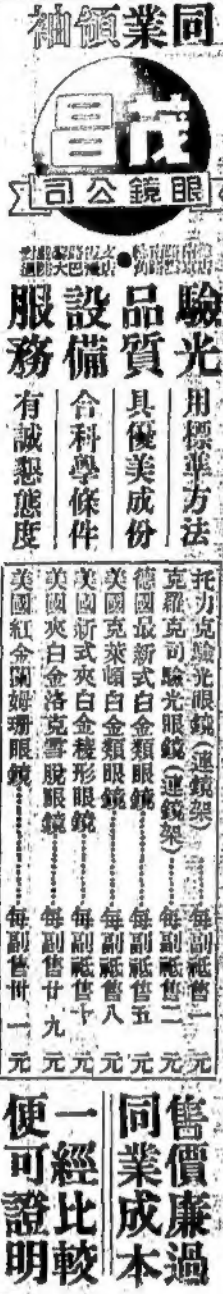 同業領袖
茂昌
眼鏡公司
驗光 用標準方法
品質 具優美成份
設備 合科學條件
服務 有誠懇態度
托力克驗光眼鏡(連鏡架)……每副售一元
克羅克司驗光眼鏡(連鏡架)……每副祗售二元
德國最新式白金類眼鏡……每副祗售五元
美國克萊頓白金類眼鏡……每副祗售八元
美國新式夾白金稜形眼鏡……每副祗售十元
美國夾白金洛克雪脫眼鏡……每副售廿九元
美國紅金關姆珊眼鏡……每副售卅一元
售價廉過
同業成本
一經比較
便可證明